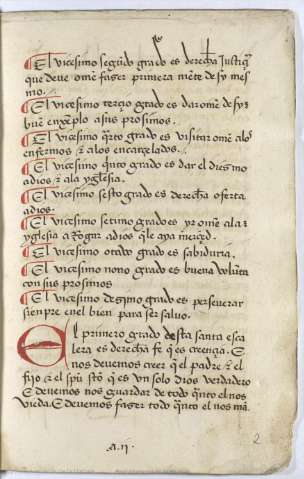 El vicesimo segũdo grado es derecha Justiçia
que deve ome faser primera mẽte de sy mes
mo.
El vicesimo terçio grado es dar ome de sy
buẽ enxẽplo a sus proximos.
El vicesimo qͣrto grado es visitar ome a los
enfermos & a los encarçelados.
El vicesimo quinto grado es dar el diesmo
a dios & a la yglesia.
El vicesimo sesto grado es derecha oferta
a dios.
El vicesimo setimo grado es yr ome a la
yglesia a Rogar a dios q̃ le aya merçed.
El vicesimo otavo grado es sabiduria.
El vicesimo nono grado es buena volũtad
con sus proximos
El vicesimo deçimo grado es perseverar
sienpre en el bien para ser salvo.
El primero grado desta santa esca
lera es derecha fe q̃ es creençia. E
nos devemos creer q̃ el padre & el
fijo & el spũ stõ q̃ es vn solo dios verdadero
E devemos nos guardar de todo qͣnto el nos
vieda. E devemos faser todo qͣnto el nos mã
.a.ij.
2